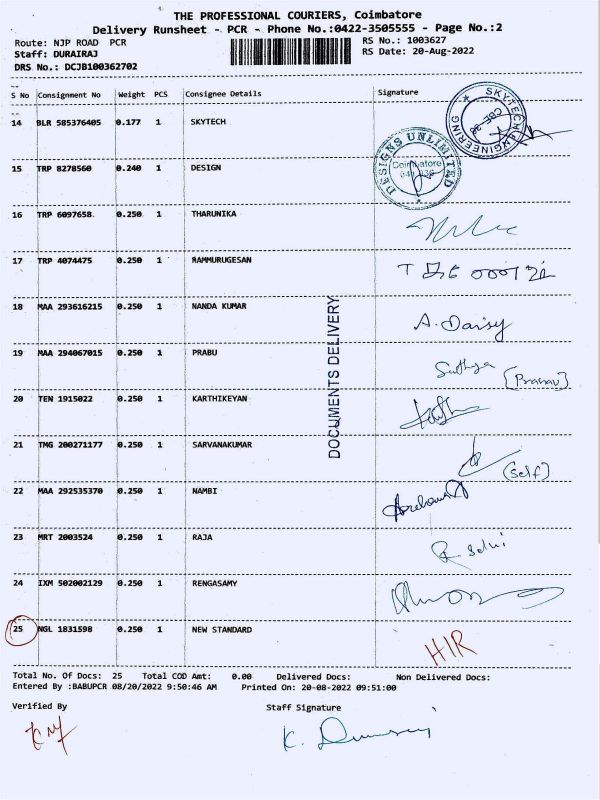 THE PROFESSIONAL COURIERS, Coimbatore
Delivery Runsheet - PCR - Phone No.:0422-3505555 - Page No.:2
Route: NJP ROAD PCR
RS No.: 1003627
Staff: DURAIRAJ
RS Date: 20-Aug-2022
DRS No.: DCJB100362702
S No Consignment No Weight PCS Consignee Details Signature
14 BLR 585376405 0.177 1 SKYTECH
SKYTECH ENGINEERING
15 TRP 8278560 0.240 1 DESIGN
DESIGNS UNLIMITED
Coimbatore
16 TRP 6097658 0.250 1 THARUNIKA
17 TRP 4074475 0.250 1 RAMMURUGESAN
18 MAA 293616215 0.250 1 NANDA KUMAR A. Daisy
19 MAA 294067015 0.250 1 PRABU
20 TEN 1915022 0.250 1 KARTHIKEYAN
21 TMG 200271177 0.250 1 SARVANAKUMAR (Self)
22 MAA 292535370 0.250 1 NAMBI
23 MRT 2003524 0.250 1 RAJA R Selvi
24 IXM 502002129 0.250 1 RENGASAMY
25 NGL 1831598 0.250 1 NEW STANDARD HIR
DOCUMENTS DELIVERY
Total No. Of Docs: 25 Total COD Amt: 0.00 Delivered Docs: Non Delivered Docs:
Entered By :BABUPCR 08/20/2022 9:50:46 AM Printed On: 20-08-2022 09:51:00
Verified By Staff Signature